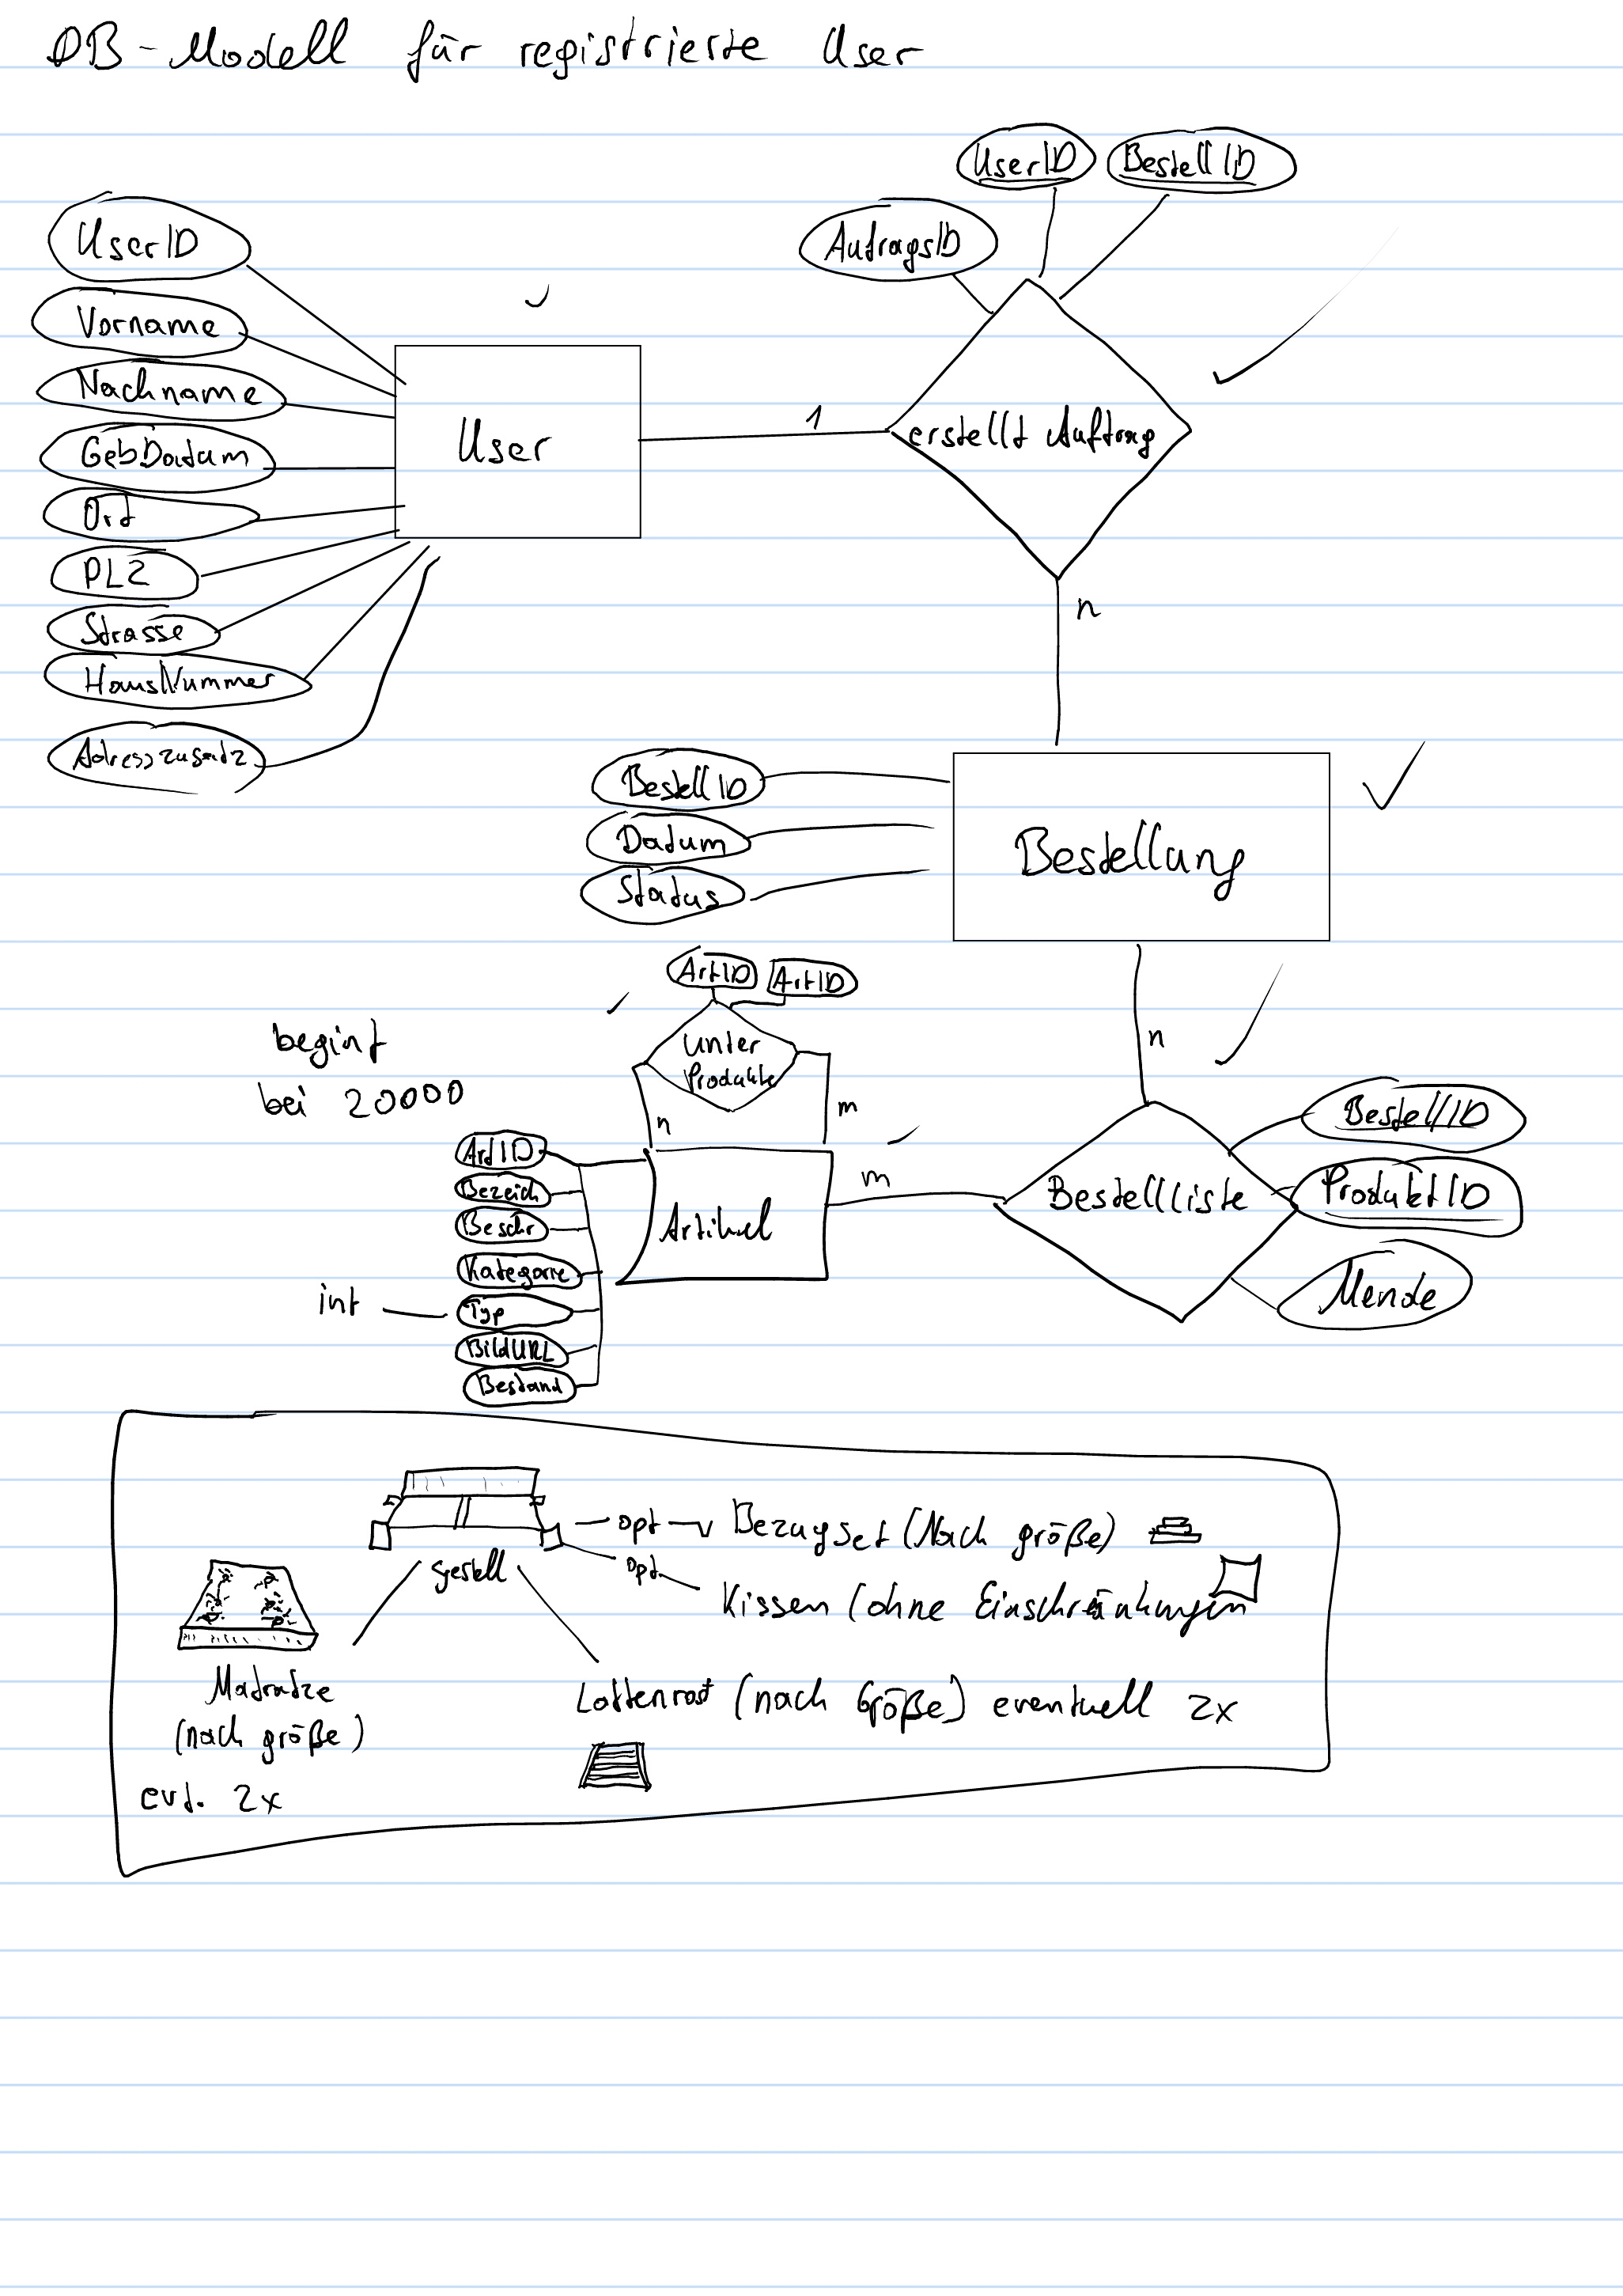 DB-Modell für registrierte User
UserID
BestellID
AufragsID
UserID
Vorname
Nachname
GebDatum
Ort
PLZ
Strasse
HausNummer
Adresszusatz
User
1
erstellt Auftrag
n
BestellID
Datum
Status
Bestellung
n
ArtID
ArtID
unter
Produkte
n
m
begint
bei 20000
ArtID
Bezeich
Beschr
Kategorie
int
Typ
BildURL
Bestand
Artikel
m
Bestellliste
BestellID
ProduktID
Mende
opt
Bezugset (Nach größe)
opt.
Kissen (ohne Einschränkungen
gestell
Matratze
(nach größe)
evt. 2x
Lattenrost (nach Größe) eventuell 2x